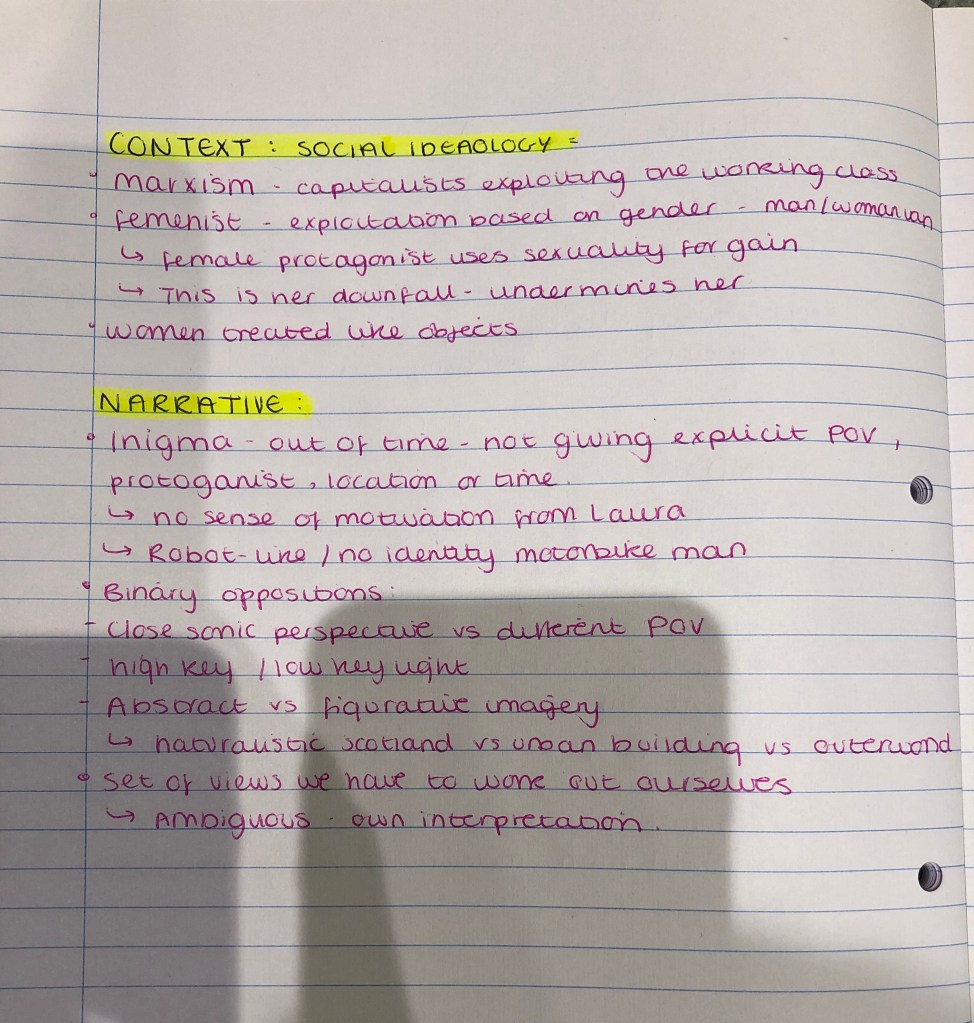 CONTEXT : SOCIAL IDEAOLOGY =
• Marxism - capitalists exploiting the working class
• femenist - exploitation based on gender - man/woman/van
↳ female protagonist uses sexuality for gain
↳ This is her downfall - undermines her
• women treated like objects
NARRATIVE :
• Inigma - out of time - not giving explicit POV ,
protoganist , location or time.
↳ no sense of motivation from Laura
↳ Robot-like / no identity motorbike man
• Binary oppositions :
- Close sonic perspective vs different POV
- high key / low key light
- Abstract vs figurative imagery
↳ naturalistic scotland vs urban building vs outerworld
• set of views we have to work out ourselves
↳ Ambiguous - own interpretation .